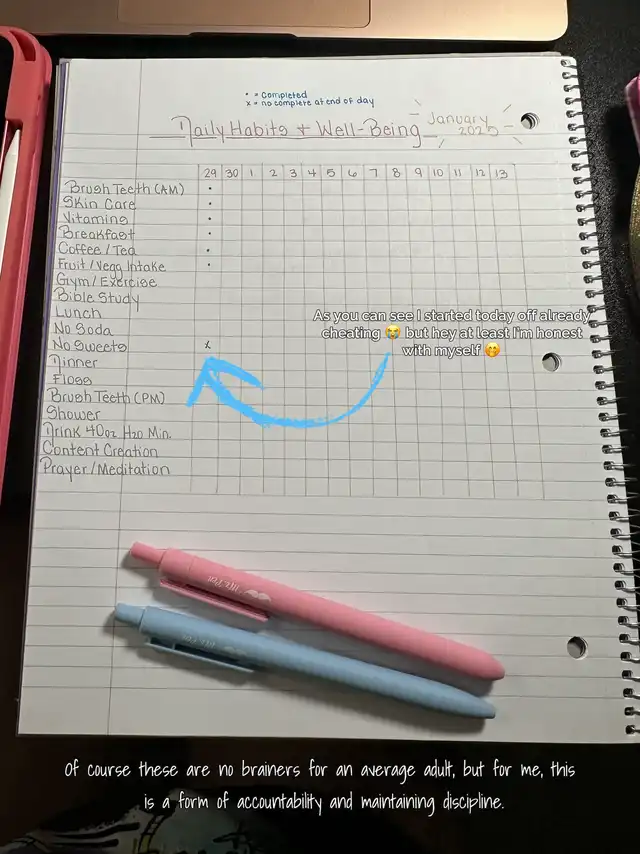 • = Completed
x = no complete at end of day
Daily Habits & Well-Being
January
2025
29 30 1 2 3 4 5 6 7 8 9 10 11 12 13
Brush Teeth (AM) •
Skin Care •
Vitamins •
Breakfast •
Coffee / Tea •
Fruit / Vegg Intake •
Gym / Exercise
Bible Study
Lunch
No Soda
No Sweets x
Dinner
Floss
Brush Teeth (PM)
Shower
Drink 40oz H2O Min.
Content Creation
Prayer / Meditation
As you can see I started today off already
cheating 😭 but hey at least I'm honest
with myself 🤭
Of course these are no brainers for an average adult, but for me, this
is a form of accountability and maintaining discipline.